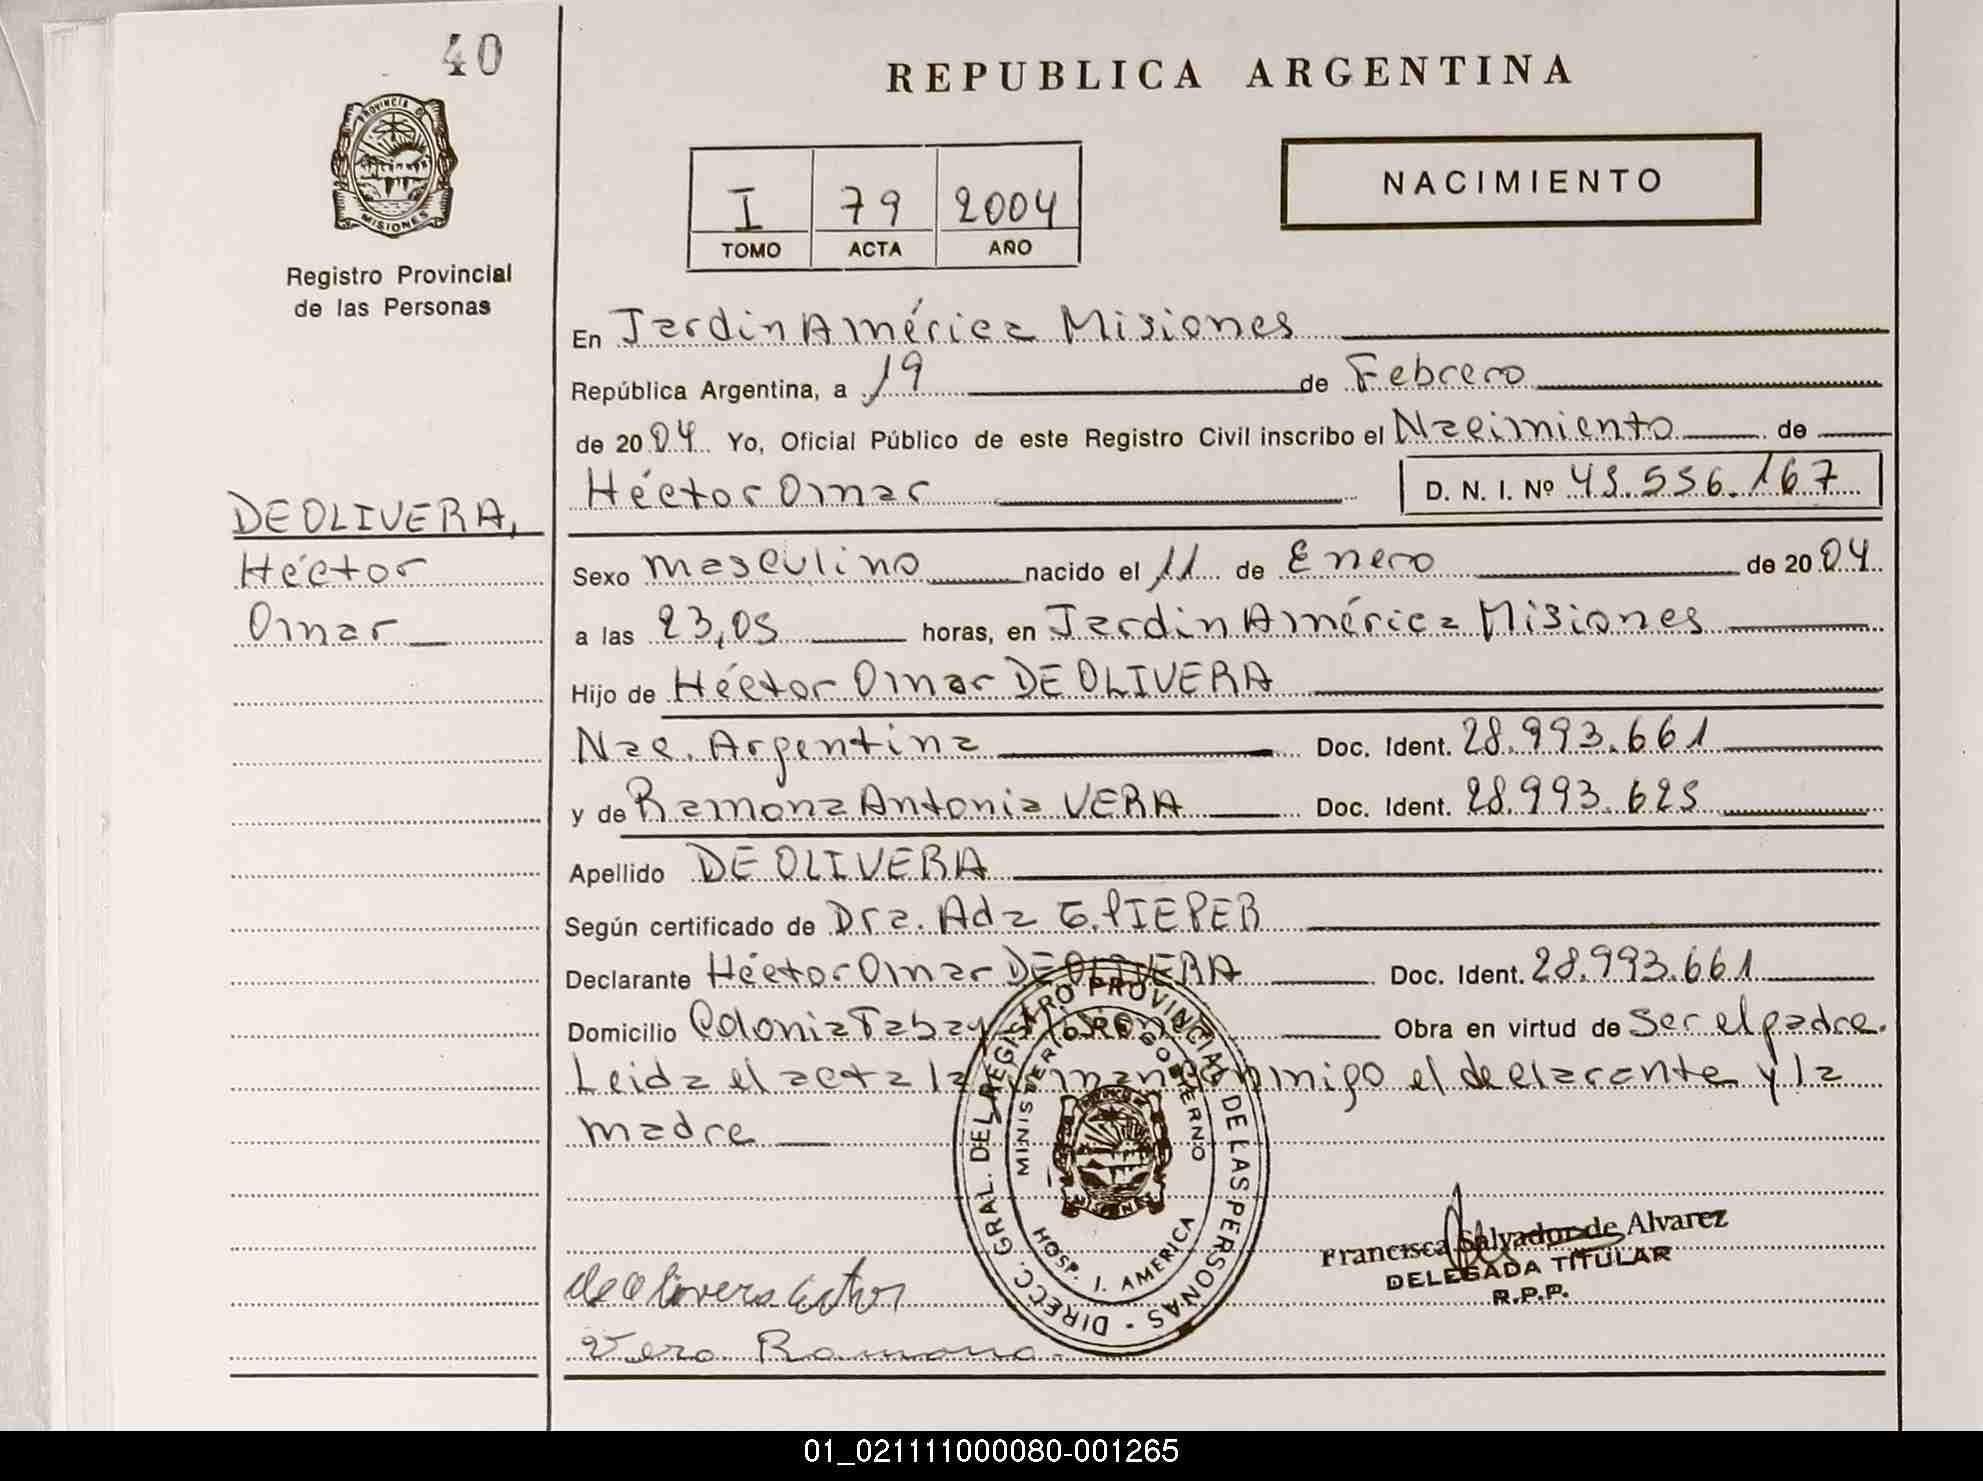 40
PROVINCIA DE
MISIONES
Registro Provincial
de las Personas
DE OLIVERA,
Héctor
Omar
REPUBLICA ARGENTINA
I 79 2004
TOMO ACTA AÑO
NACIMIENTO
En Jardín América Misiones
República Argentina, a 19 de Febrero
de 2004 Yo, Oficial Público de este Registro Civil inscribo el Nacimiento de
Héctor Omar D. N. I. Nº 45.556.167
Sexo masculino nacido el 11 de Enero de 2004
a las 23,05 horas, en Jardín América Misiones
Hijo de Héctor Omar DE OLIVERA
Nac. Argentina Doc. Ident. 28.993.661
y de Ramona Antonia VERA Doc. Ident. 28.993.625
Apellido DE OLIVERA
Según certificado de Dra. Ada G. PIEPER
Declarante Héctor Omar DE OLIVERA Doc. Ident. 28.993.661
Domicilio Colonia Tabay Misiones Obra en virtud de Ser el padre.
Leida el acta la firman conmigo el declarante y la
madre
DIRECC. GRAL. DEL REGISTRO PROVINCIAL DE LAS PERSONAS -
MINISTERIO DE GOBIERNO
HOSP. I. AMERICA
MISIONES
Francisca Salvador de Alvarez
DELEGADA TITULAR
R.P.P.
de Olivera Ector
Vera Ramona
01_021111000080-001265